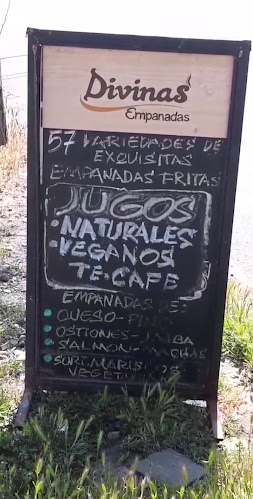 Divinas
Empanadas
57 VARIEDADES DE
EXQUISITAS
EMPANADAS FRITAS
JUGOS
• NATURALES
• VEGANOS
TE • CAFE
EMPANADAS DE:
QUESO - PINO
OSTIONES - JAIBA
SALMON - MACHAS
SURT. MARISCOS